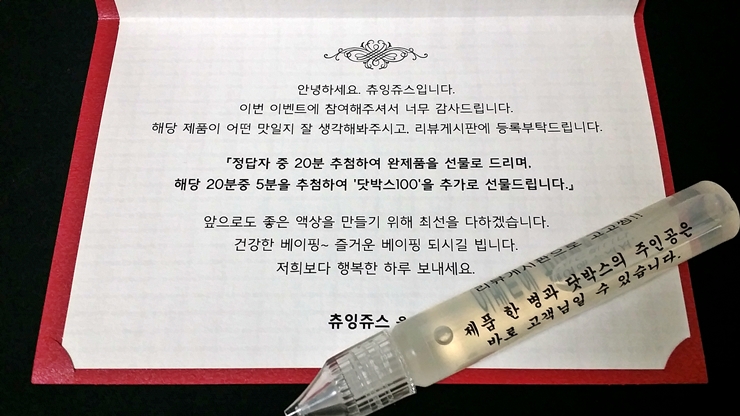 안녕하세요. 츄잉쥬스입니다.
이번 이벤트에 참여해주셔서 너무 감사드립니다.
해당 제품이 어떤 맛일지 잘 생각해봐주시고, 리뷰게시판에 등록부탁드립니다.
「정답자 중 20분 추첨하여 완제품을 선물로 드리며,
해당 20분중 5분을 추첨하여 '닷박스100'을 추가로 선물드립니다.」
앞으로도 좋은 액상을 만들기 위해 최선을 다하겠습니다.
건강한 베이핑~ 즐거운 베이핑 되시길 빕니다.
저희보다 행복한 하루 보내세요.
츄잉쥬스
리뷰게시판으로 고고씽!!
제품 한 병과 닷박스의 주인공은
바로 고객님일 수 있습니다.